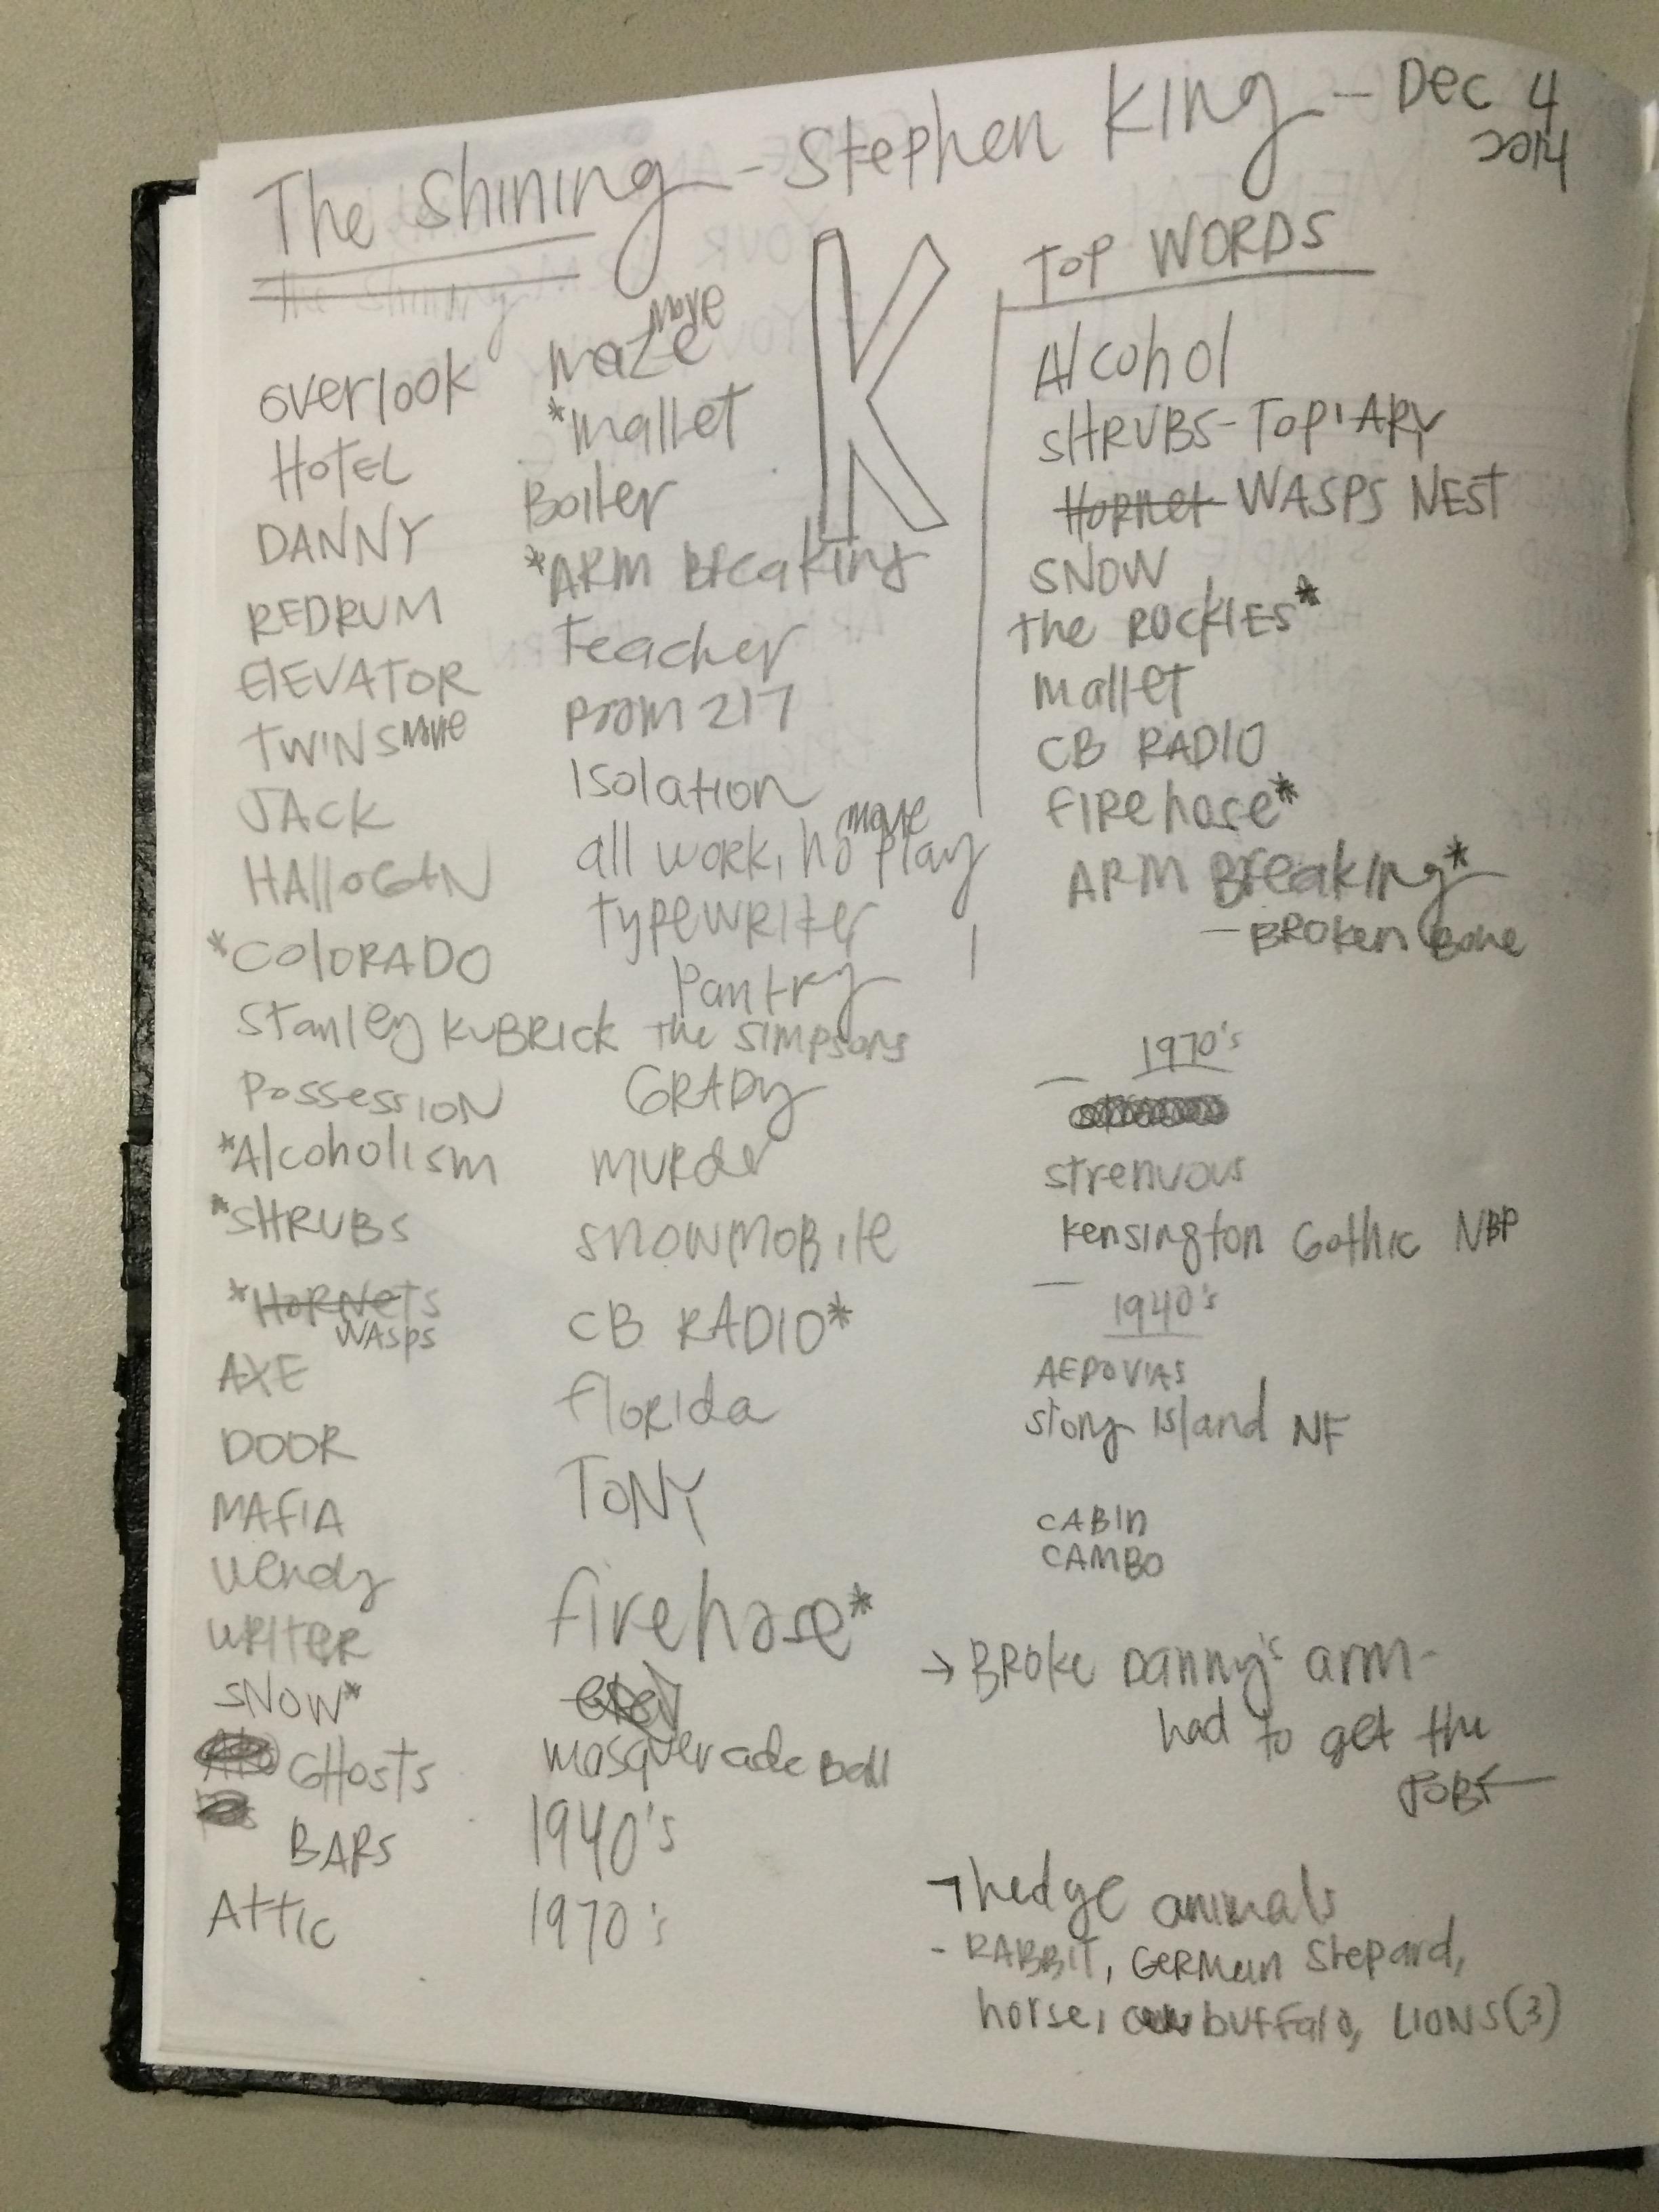 The Shining - Stephen King - Dec 4
2014
K
overlook
HOTEL
DANNY
REDRUM
ElEVATOR
TWINS
JACK
HAlloGAN
*COlORADO
Stanley KUBRICK
Possession
*Alcoholism
*SHRUBS
*HORNETS
WAsps
AXE
DOOR
MAFIA
Wendy
WRITER
SNOW*
GHosts
BARS
Attic
maze
*mallet
Boiler
*ARM Breaking
teacher
room 217
Isolation
all work, no play
typewriter
Pantry
the Simpsons
GRADY
MURder
snowmobile
CB RADIO*
florida
TONY
firehose*
masquerade Ball
1940's
1970's
TOP WORDS
Alcohol
SHRUBS-TOPIARY
Hornet WASPS NEST
SNOW
the ROCKIES*
mallet
CB RADIO
FIRehose*
ARM Breaking*
- BROken Bone
1970's
strenuous
Kensington Gothic NBP
1940's
story Island NF
CABIN
CAMBO
→ BROKE Danny's arm -
had to get the
JOB ←
hedge animals
- RABBIT, GERMAN Shepard,
horse, buffalo, LIONS (3)